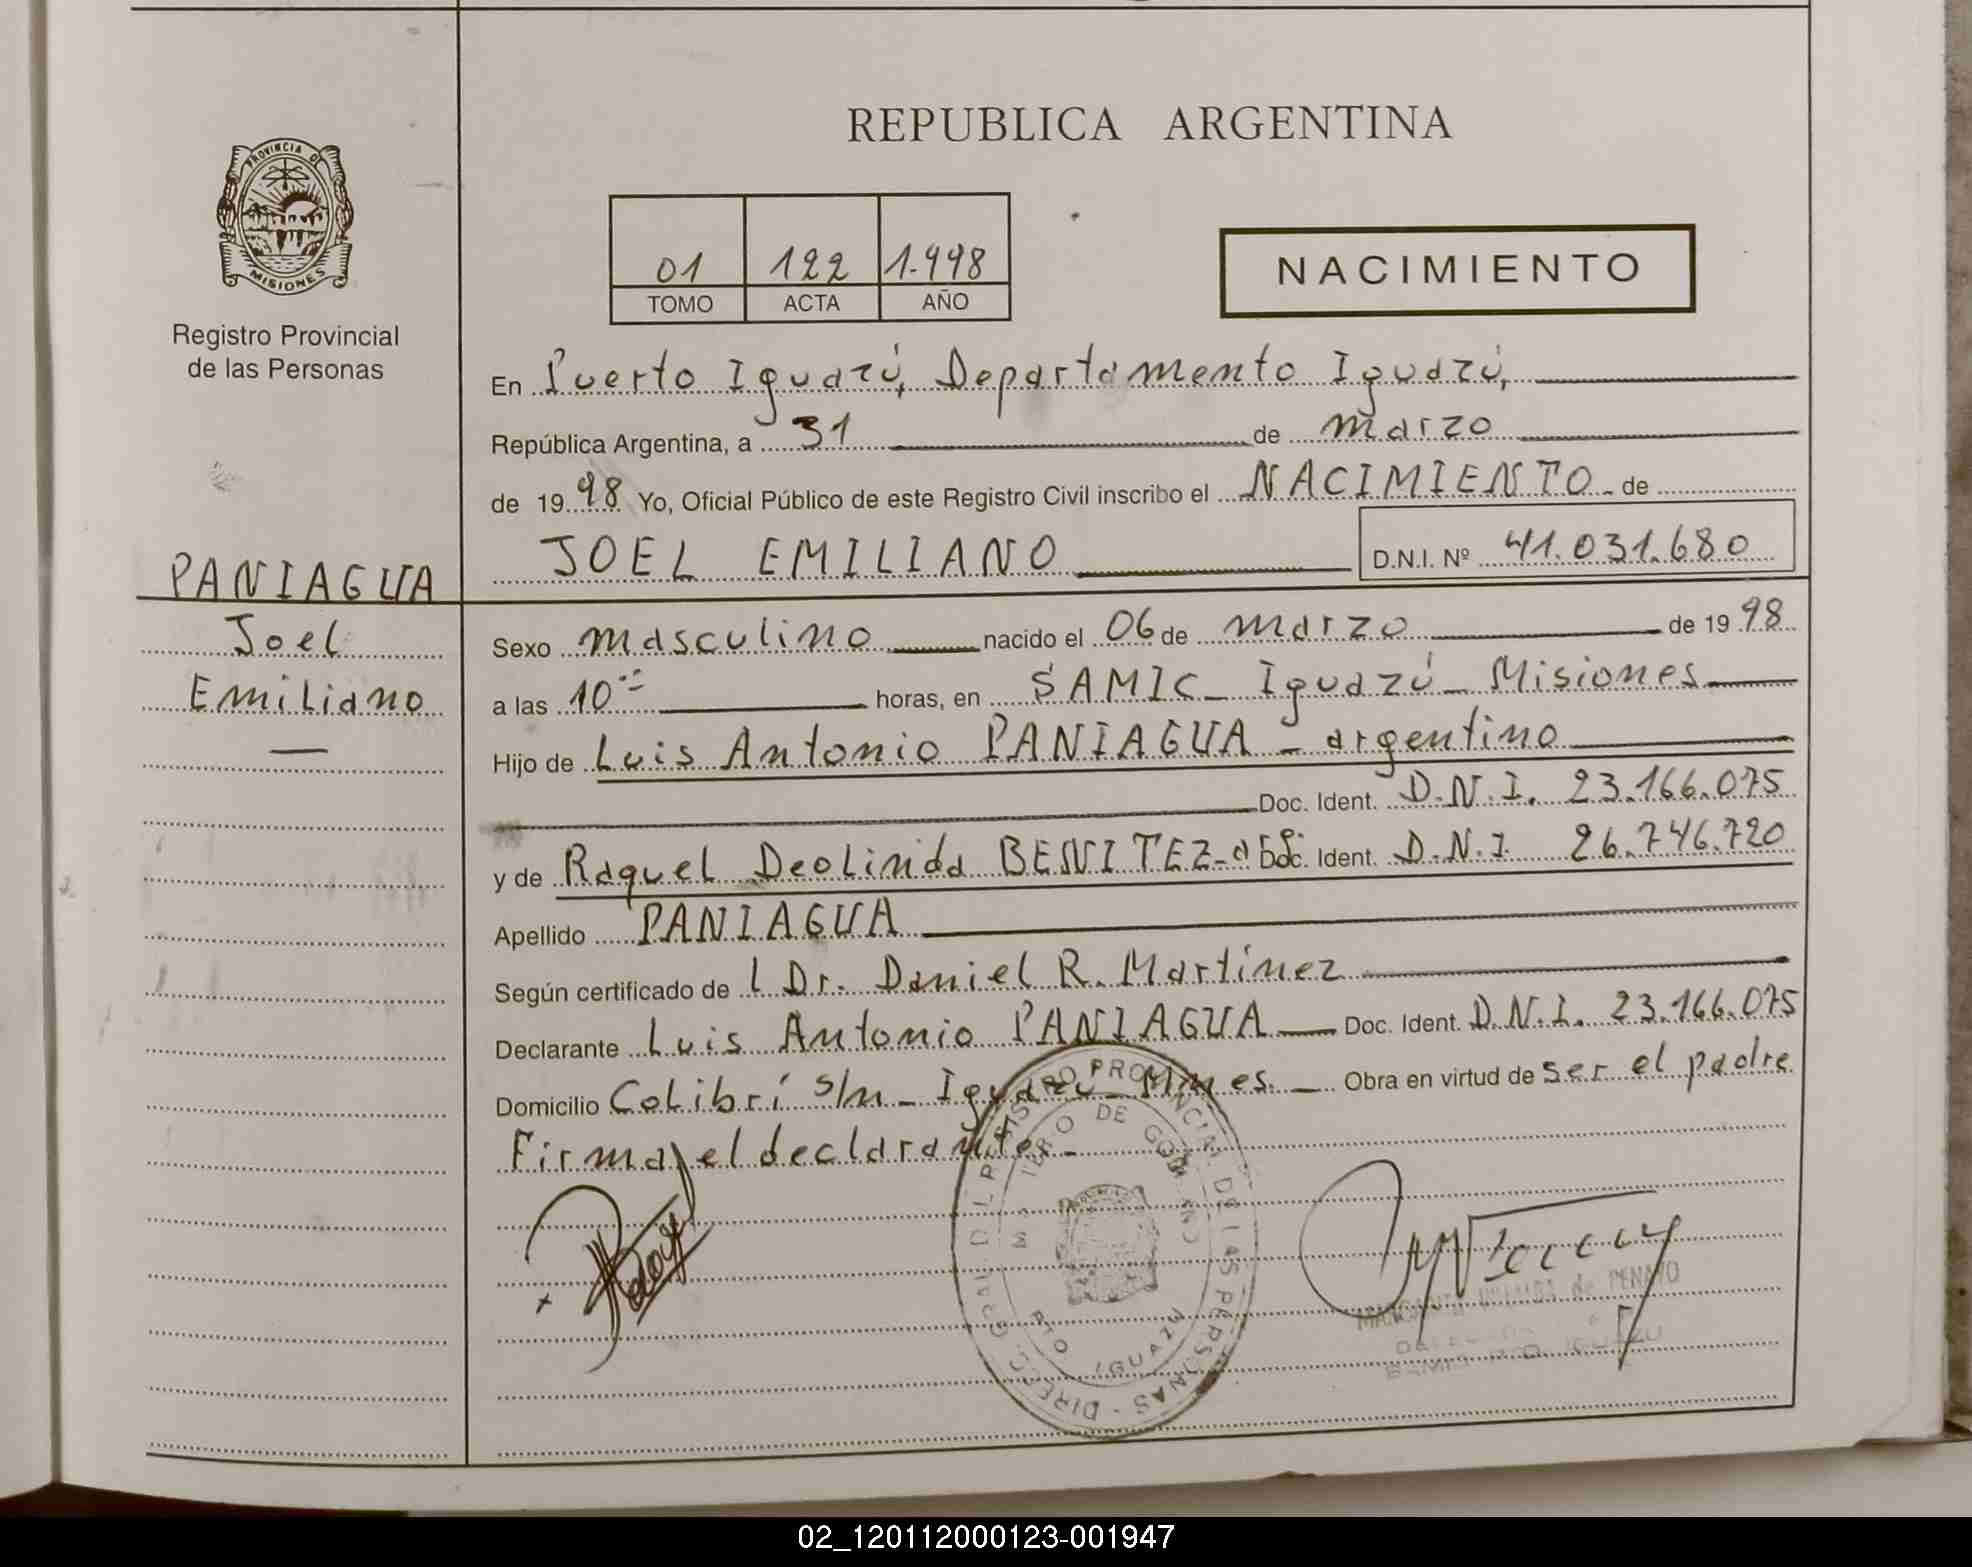 REPUBLICA ARGENTINA
PROVINCIA DE MISIONES
Registro Provincial
de las Personas
01 122 1.998
TOMO ACTA AÑO
NACIMIENTO
En Puerto Iguazú, Departamento Iguazú,
República Argentina, a 31 de marzo
de 1998 Yo, Oficial Público de este Registro Civil inscribo el NACIMIENTO de
JOEL EMILIANO D.N.I. Nº 41.031.680
PANIAGUA
Joel
Emiliano
Sexo masculino nacido el 06 de marzo de 1998
a las 10 horas, en SAMIC - Iguazú - Misiones
Hijo de Luis Antonio PANIAGUA - argentino
Doc. Ident. D.N.I. 23.166.075
y de Raquel Deolinda BENITEZ - Doc. Ident. D.N.I. 26.746.720
Apellido PANIAGUA
Según certificado de l Dr. Daniel R. Martinez
Declarante Luis Antonio PANIAGUA Doc. Ident. D.N.I. 23.166.075
Domicilio Colibrí s/n - Iguazú - Mnes. Obra en virtud de ser el padre
Firma el declarante.
DIRECC. GRAL. DEL REGISTRO PROVINCIAL DE LAS PERSONAS
DE GOBIERNO
PTO IGUAZU
de PENAYO
IGUAZU
02_120112000123-001947